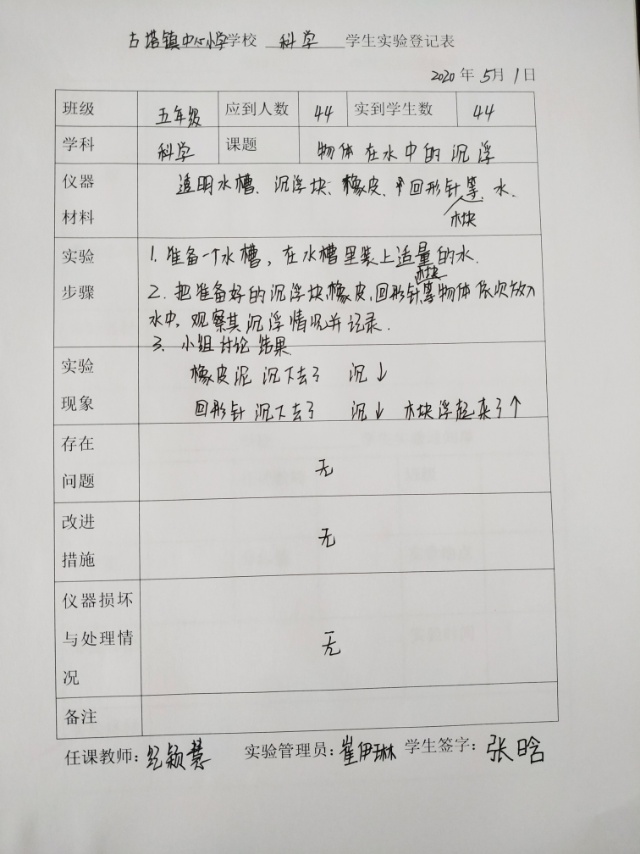 古塔镇中心小学学校 科学 学生实验登记表
2020年5月1日
班级 五年级 应到人数 44 实到学生数 44
学科 科学 课题 物体在水中的沉浮
仪器 透明水槽、沉浮块、橡皮、回形针等 水.
材料 木块
实验 1.准备一个水槽，在水槽里装上适量的水.
木块
步骤 2.把准备好的沉浮块橡皮,回形针等物体依次放入
水中，观察其沉浮情况并记录.
3.小组讨论结果
实验 橡皮泥 沉下去了 沉↓
现象 回形针 沉下去了 沉↓ 木块浮起来了↑
存在
问题 无
改进
措施 无
仪器损坏
与处理情 无
况
备注
任课教师：纪颖慧 实验管理员：崔伊琳 学生签字：张晗